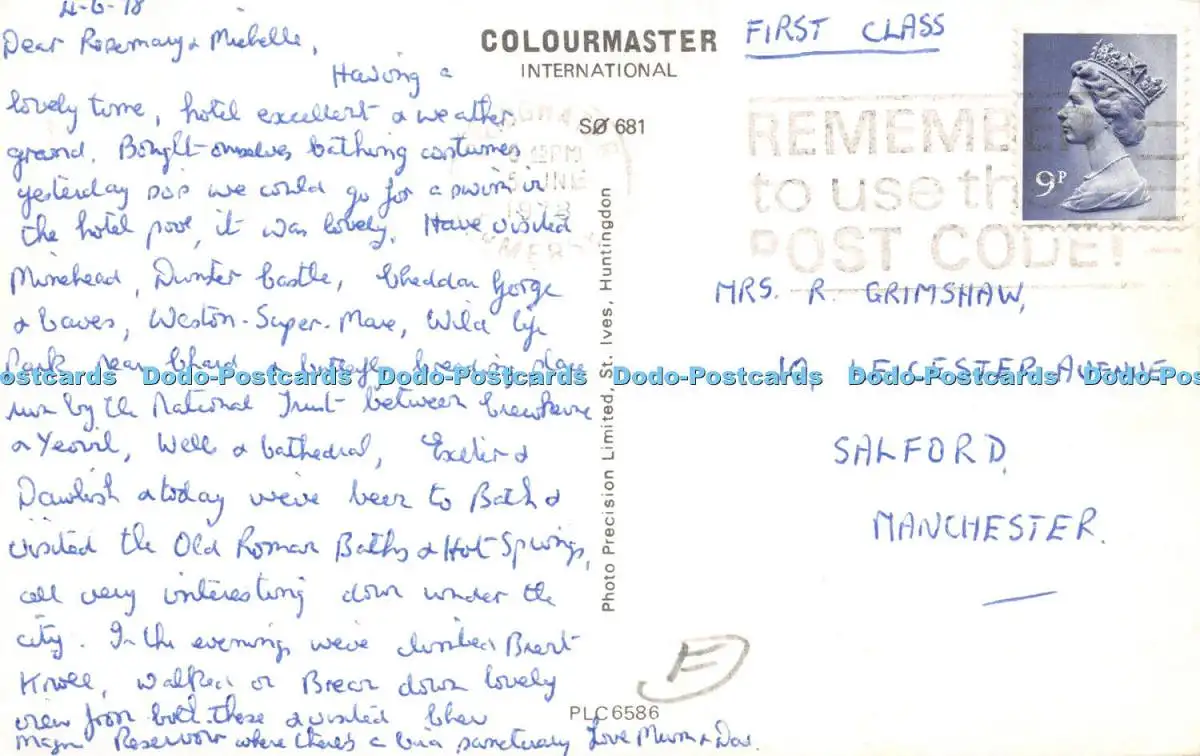 4-6-78
Dear Rosemary & Michelle,
Having a
lovely time, hotel excellent & weather
grand. Bought ourselves bathing costumes
yesterday so we could go for a swim in
the hotel pool, it was lovely. Have visited
Minehead, Dunster Castle, Cheddar Gorge
& Caves, Weston-Super-Mare, Wild life
Park near Chard & butterfly breeding place
run by the National Trust between Crewkerne
& Yeovil, Wells & Cathedral, Exeter &
Dawlish & today we've been to Bath &
visited the Old Roman Baths & Hot Springs,
all very interesting down under the
city. In the evenings we've climbed Brent
Knoll, walked on Brean down lovely
view from both these & visited Chew
Magna Reservoir where there's a bird sanctuary Love Mum & Dad.
COLOURMASTER
INTERNATIONAL
SØ 681
Photo Precision Limited, St. Ives, Huntingdon
PLC6586
FIRST CLASS
9P
REMEMBER
to use the
POST CODE!
JUNE
1978
MRS. R. GRIMSHAW,
LEICESTER AVENUE
SALFORD,
MANCHESTER.
E
Dodo-Postcards Dodo-Postcards Dodo-Postcards Dodo-Postcards Dodo-Postcards